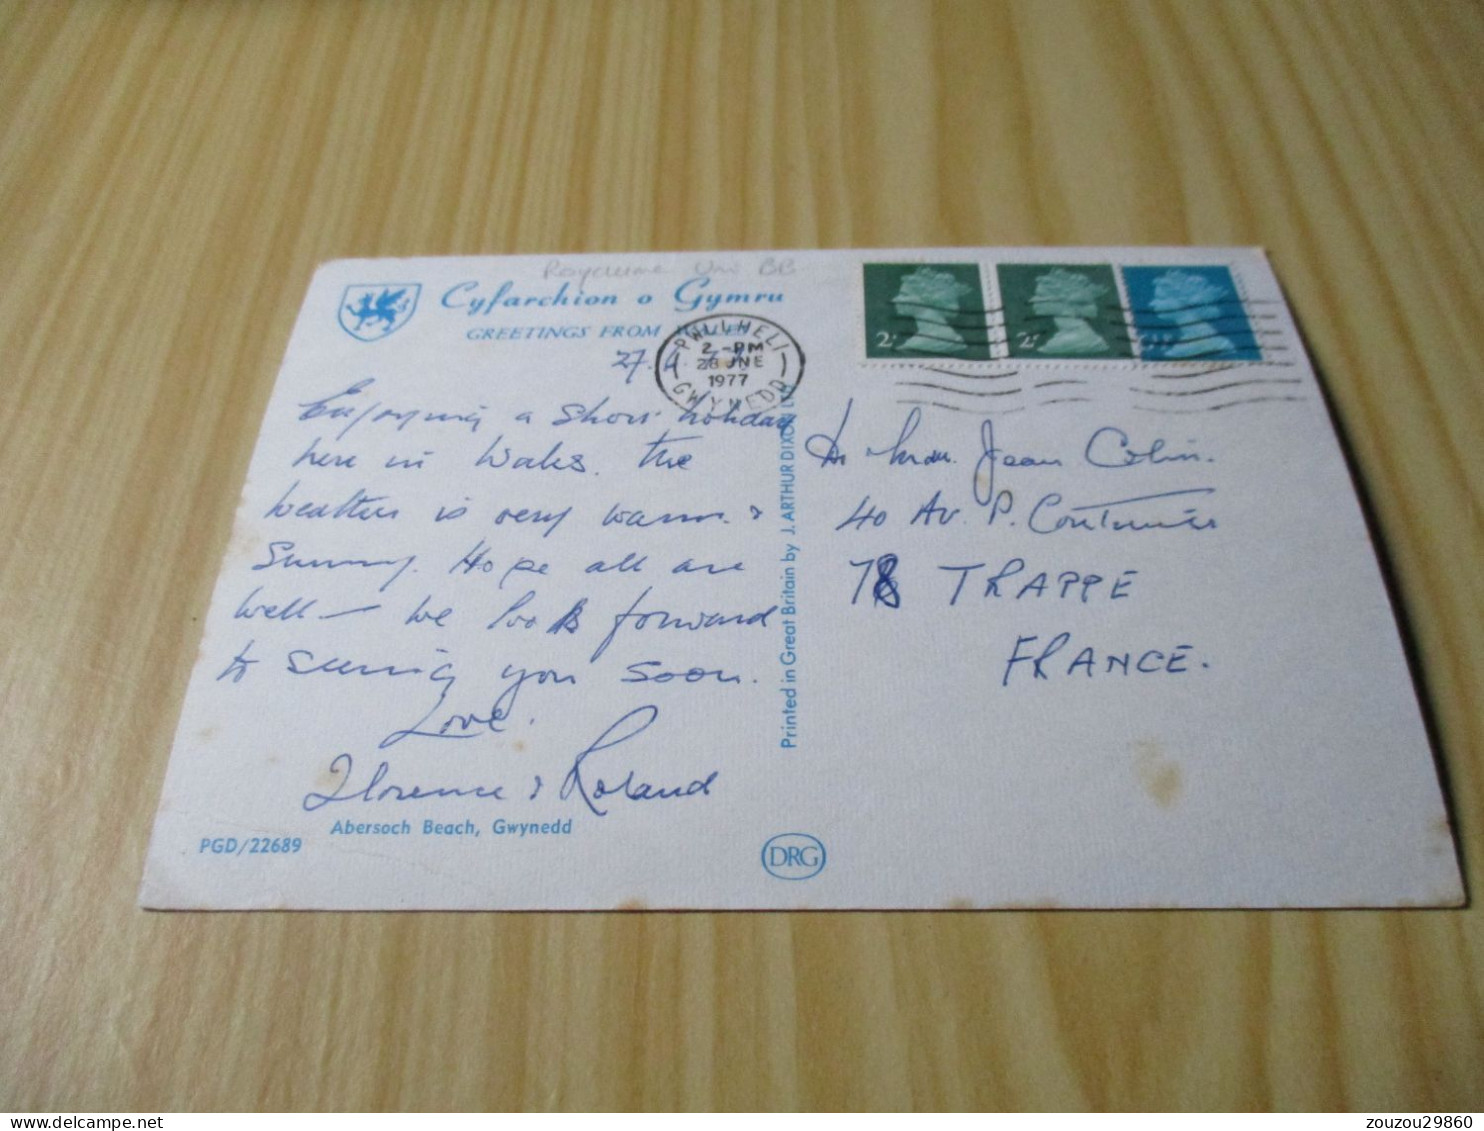 Royaume Uni BB
Cyfarchion o Gymru
GREETINGS FROM
PWLLHELI
2 -PM
28 JNE
1977
GWYNEDD
27.
Enjoying a short holiday
here in Wales. The
weather is very warm &
sunny. Hope all are
well — we look forward
to seeing you soon.
Love.
Florence & Roland
Abersoch Beach, Gwynedd
PGD/22689
Printed in Great Britain by J. ARTHUR DIXON
DRG
2
2
Jean Colin.
40 Av. P.
78 TRAPPE
FRANCE.
zouzou29860